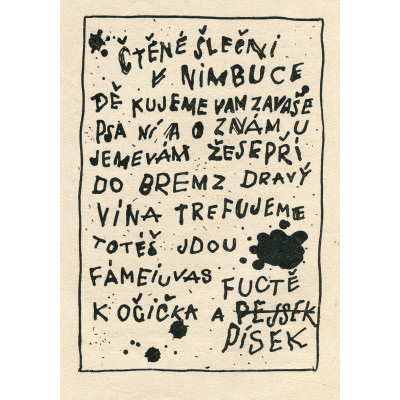 ČTĚNÉ ŠLEČNI
V NIMBUCE
DĚ KUJEME VAM ZAVAŠE
PSA NÍ A O ZNÁM UJ
JEMEVÁM ŽESEPŘÍ
DO BREMZ DRAVÝ
VÍNA TREFUJEME
TOTÉŠ JDOU
FÁMEIUVAS
FUCTĚ
KOČIČKA A PEJSEK
PÍSEK